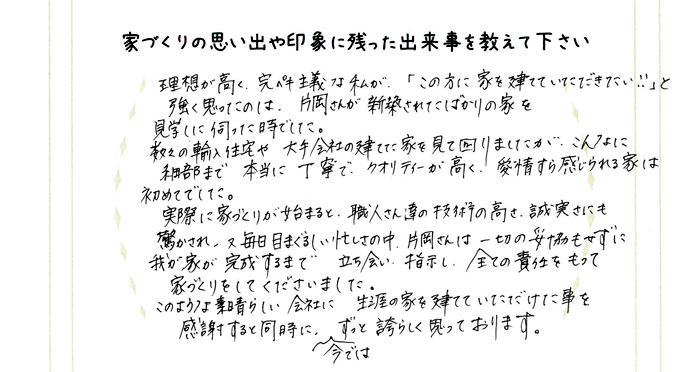 家づくりの思い出や印象に残った出来事を教えて下さい
理想が高く、完ペキ主義な私が、「この方に家を建てていただきたい!!」と
強く思ったのは、片岡さんが新築されたばかりの家を
見学しに伺った時でした。
数々の輸入住宅や大手会社の建てた家を見て回りましたが、こんなに
細部まで本当に丁寧で、クオリティーが高く、愛情すら感じられる家は
初めてでした。
実際に家づくりが始まると、職人さん達の技術の高さ、誠実さにも
驚かされ、又毎日目まぐるしい忙しさの中、片岡さんは一切の妥協もせずに
我が家が完成するまで立ち会い、指示し、全ての責任をもって
家づくりをしてくださいました。
このような素晴らしい会社に生涯の家を建てていただけた事を
感謝すると同時に、ずっと誇らしく思っております。
今では